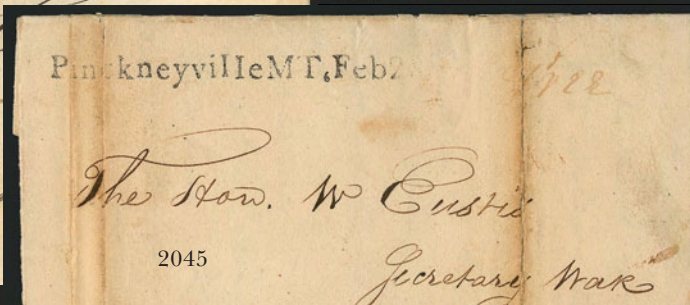 PinckneyvilleMT.Feb2
The Hon. W Eustis
2045
Secretary War